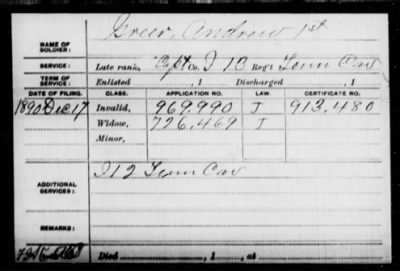 Greer, Andrew 1st
NAME OF SOLDIER:
SERVICE: Late rank, Capt Co. I 13 Reg't Tenn Cav
TERM OF SERVICE: Enlisted , 1 Discharged , 1
DATE OF FILING. CLASS. APPLICATION NO. LAW. CERTIFICATE NO.
1890 Dec 17 Invalid, 969,990 J 913,480
Widow, 726,469 J
Minor,
ADDITIONAL SERVICES: I 12 Tenn Cav
REMARKS:
Died , 1 , at